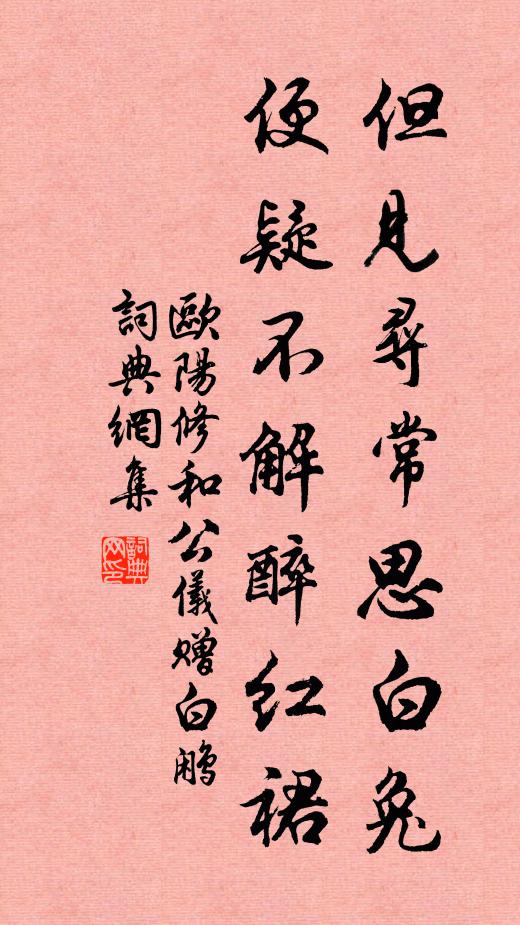 但見尋常思白兔
便疑不解醉紅裙
歐陽修和公儀贈白鷴
詞典網集
詞典
网印